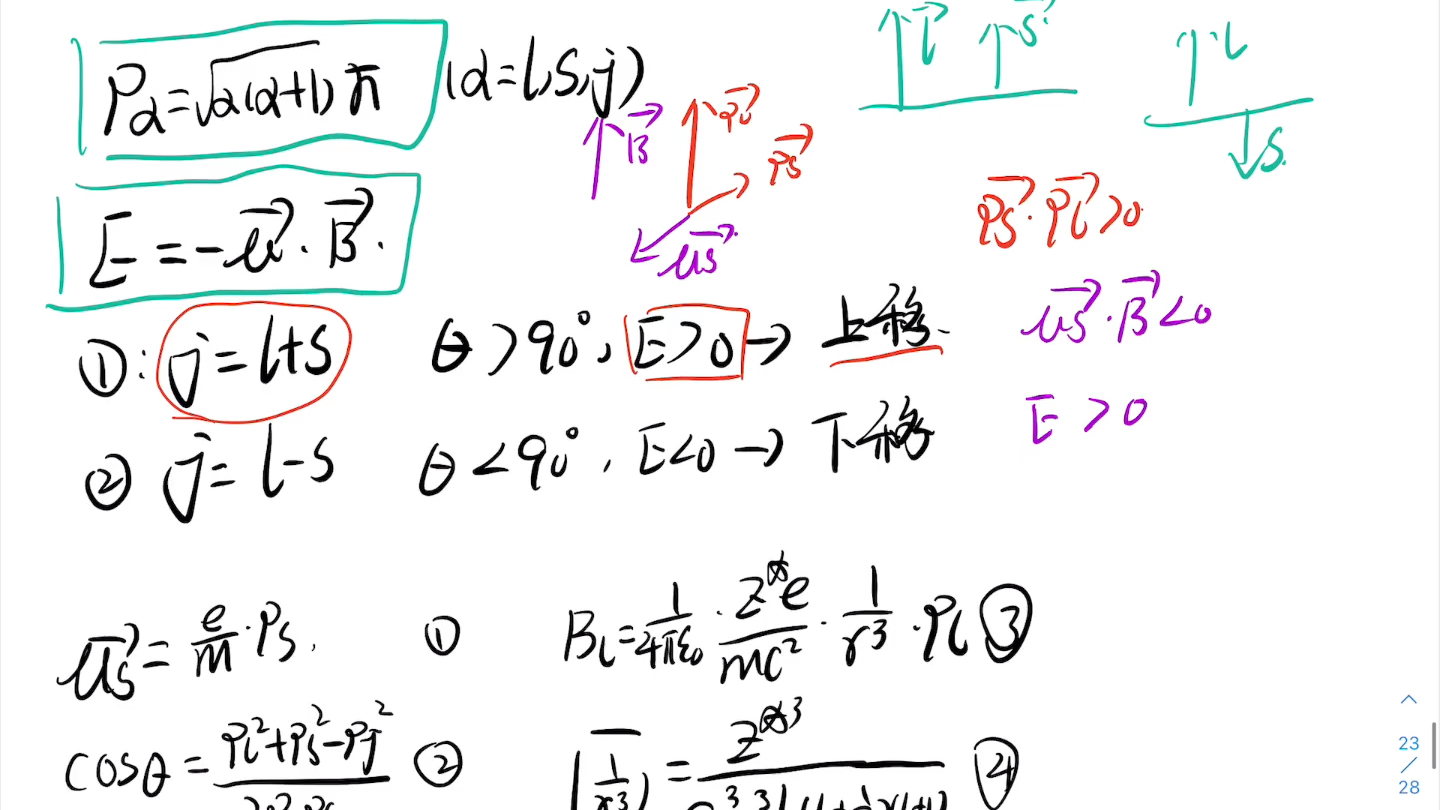 Pα=√α(α+1) ħ (α=l,s,j)
B⃗ Pl⃗ Ps⃗ μs⃗
l⃗ s⃗
l s
E=-μ⃗·B⃗.
Ps⃗·Pl⃗>0
①: j=l+s θ>90°, E>0→上移.
μs⃗·B⃗<0
② j=l-s θ<90°, E<0→下移
E>0
μs⃗=e/m·Ps, ①
Bl=1/4πε₀·Z*e/mc²·1/r³·Pl ③
cosθ=Pl²+Ps²-Pj² ②
(1/r³)=Z*³ ④
23
/
28